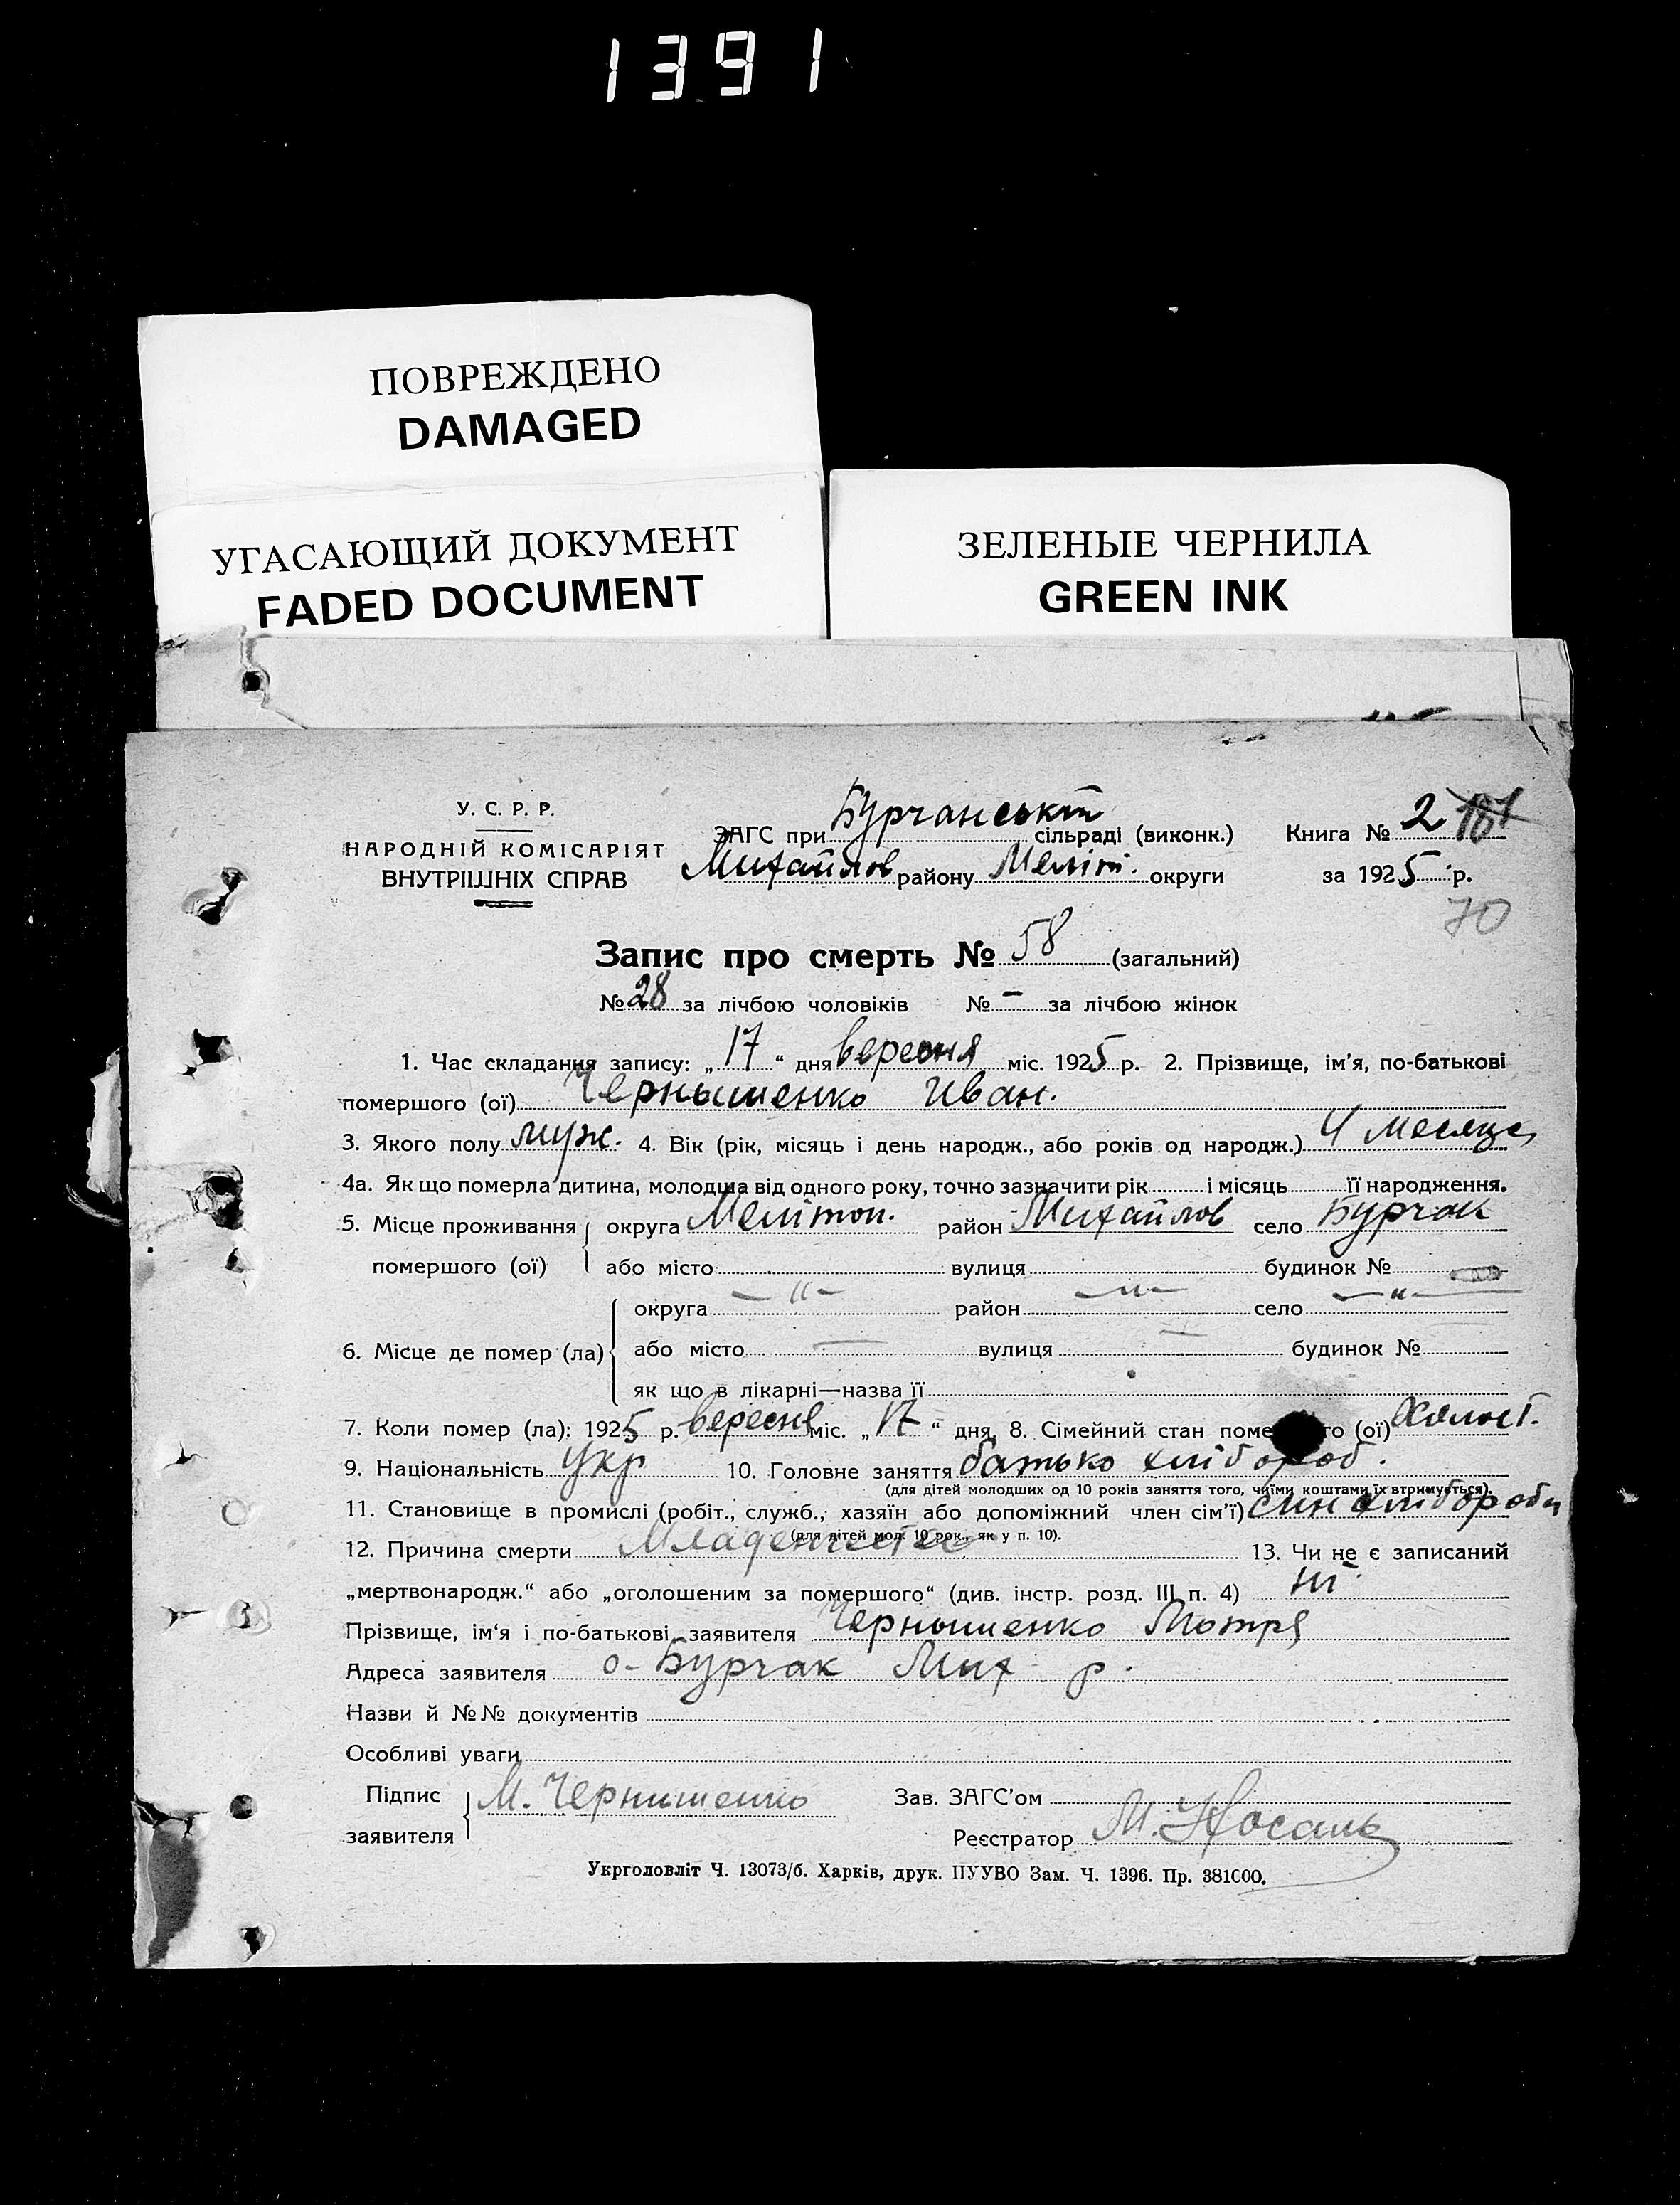 1391
ПОВРЕЖДЕНО
DAMAGED
УГАСАЮЩИЙ ДОКУМЕНТ
FADED DOCUMENT
ЗЕЛЕНЫЕ ЧЕРНИЛА
GREEN INK
У. С. Р. Р.
НАРОДНІЙ КОМІСАРІЯТ
ВНУТРІШНІХ СПРАВ
ЗАГС при Бурчанській сільраді (виконк.)
Михайлов району Меліт. округи
Книга № 2
за 1925 р.
70
Запис про смерть № 58 (загальний)
№ 28 за лічбою чоловіків № – за лічбою жінок
1. Час складання запису: „ 17 “ дня вересня міс. 1925 р. 2. Прізвище, ім'я, по-батькові
помершого (ої) Чернышенко Иван.
3. Якого полу муж. 4. Вік (рік, місяць і день народж., або років од народж.) 4 месяца
4а. Як що померла дитина, молодша від одного року, точно зазначити рік і місяць її народження.
5. Місце проживання округа Мелітоп. район Михайлов село Бурчак
помершого (ої) або місто вулиця будинок №
округа — „ — район — „ — село — „ —
6. Місце де помер (ла) або місто — вулиця — будинок №
як що в лікарні—назва її
7. Коли помер (ла): 1925 р. вересня міс. „ 17 “ дня. 8. Сімейний стан поме го (ої) Холост.
9. Національність Укр 10. Головне заняття батько хлібороб.
(для дітей молодших од 10 років заняття того, чиїми коштами їх втримується).
11. Становище в промислі (робіт., служб., хазяїн або допоміжний член сім'ї) син хлібороба
(для дітей мол. 10 рок., як у п. 10).
12. Причина смерти 13. Чи не є записаний
„мертвонародж.“ або „оголошеним за помершого“ (див. інстр. розд. III п. 4) ні
Прізвище, ім'я і по-батькові заявителя Чернышенко Мотря
Адреса заявителя с. Бурчак Мих р.
Назви й №№ документів
Особливі уваги
Підпис М. Чернишенко Зав. ЗАГС'ом
заявителя Реєстратор М.
Укрголовліт Ч. 13073/б. Харків, друк. ПУУВО Зам. Ч. 1396. Пр. 381000.